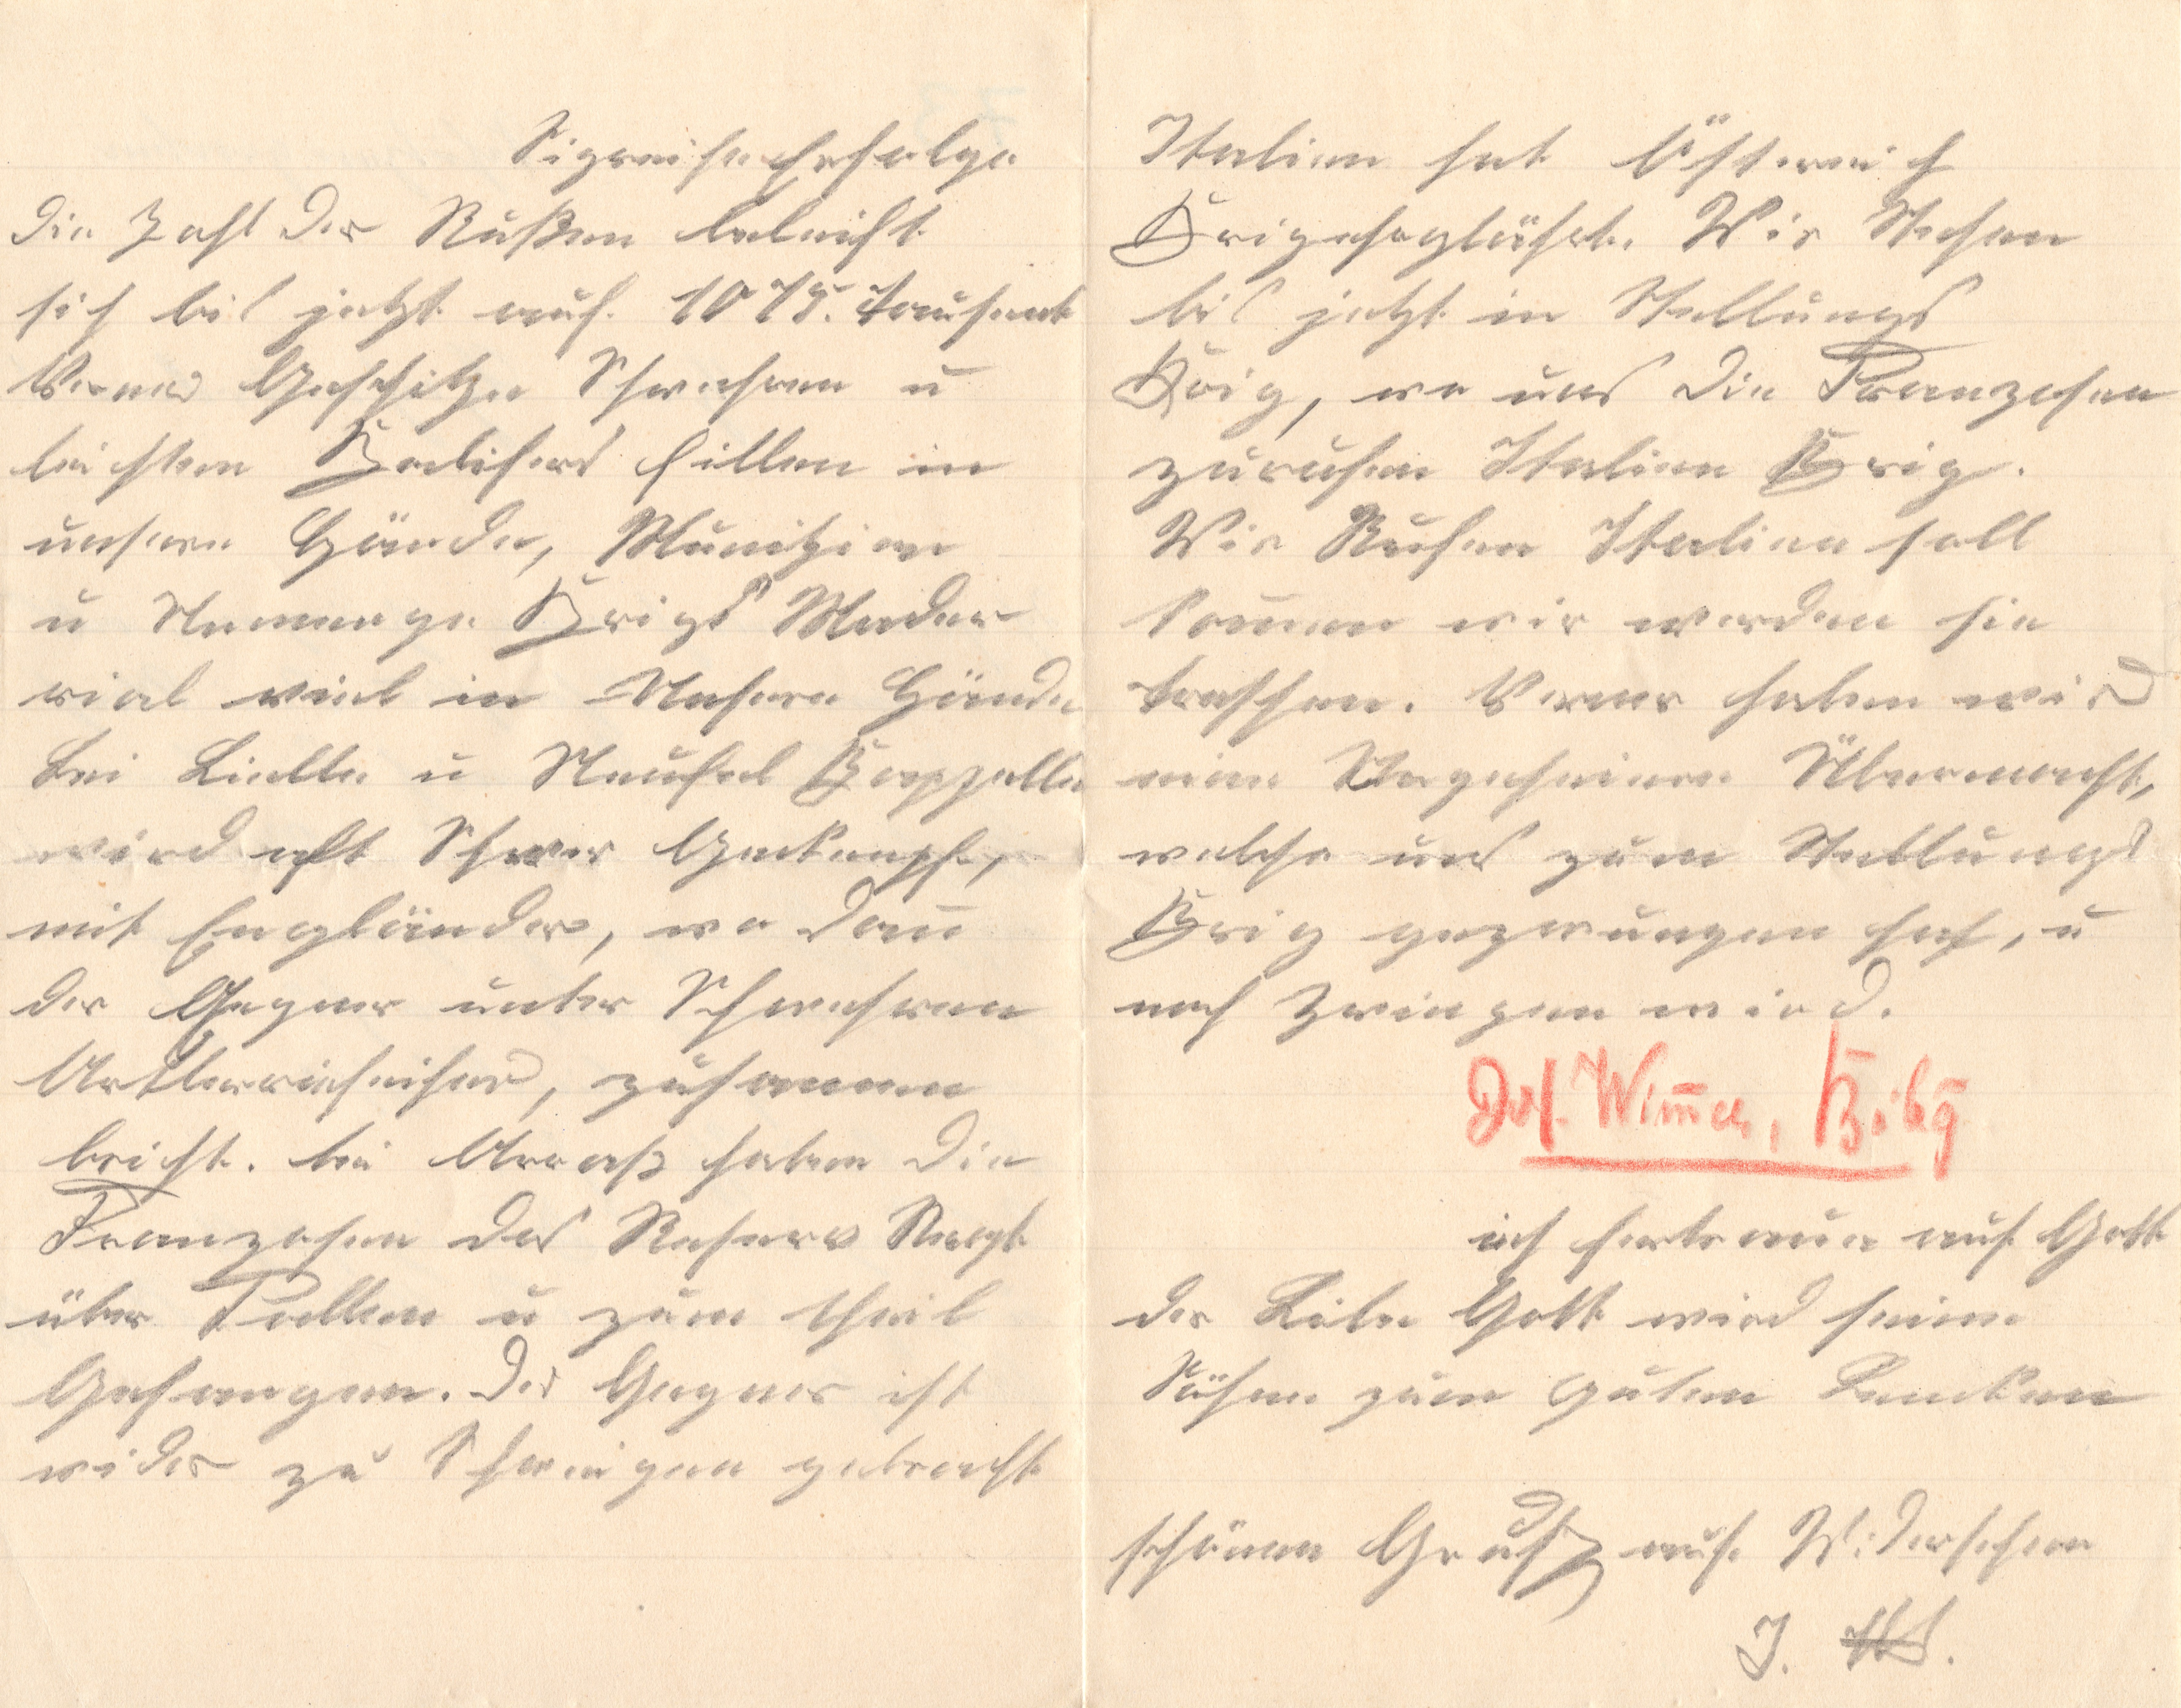 Sigreiche Erfolge
Die Zahl der Rußen beleicht
sich bis jetzt auf 1075. tausent
Verner Geschitze Schwehren u
leichten Kalibers fillen in
unsere Hände, Munizion
u Nemenge Krigs Mader
rial viel in Unsere Hände
Bei Lielle u Neufel Kappelle
wird oft Schwer Gekempft,
mit Engländer, wo dan̄
der Gegner unter Schwehren
Artlerriefeiher, zusammen
bricht. bei Arraß haben die
Franzosen das Reserv Regt
über Fallen u zum theil
Gefangen. Der Gegner ist
wider zu Schweigen gebracht
Italien hat Östereich
Krigeherglährt. Wir Stehen
bis jetzt in Stellungs
Krig, wo uns die Franzosen
zurufen Italien Krig.
Wir Rufen Italien soll
kom̄en wir werden sie
treffen. Verner haben wir
eine Ungeheiere Übermacht,
welche uns zum Stellungs
Krig gezwungen hat, u
noch Zwingen wird.
Jos. Wim̄er,
ich fertraue auf Gott
der Liebe Gott wird seine
Söhne zum guten Lenken
schönen Gruß auf Widersehen
J. W.